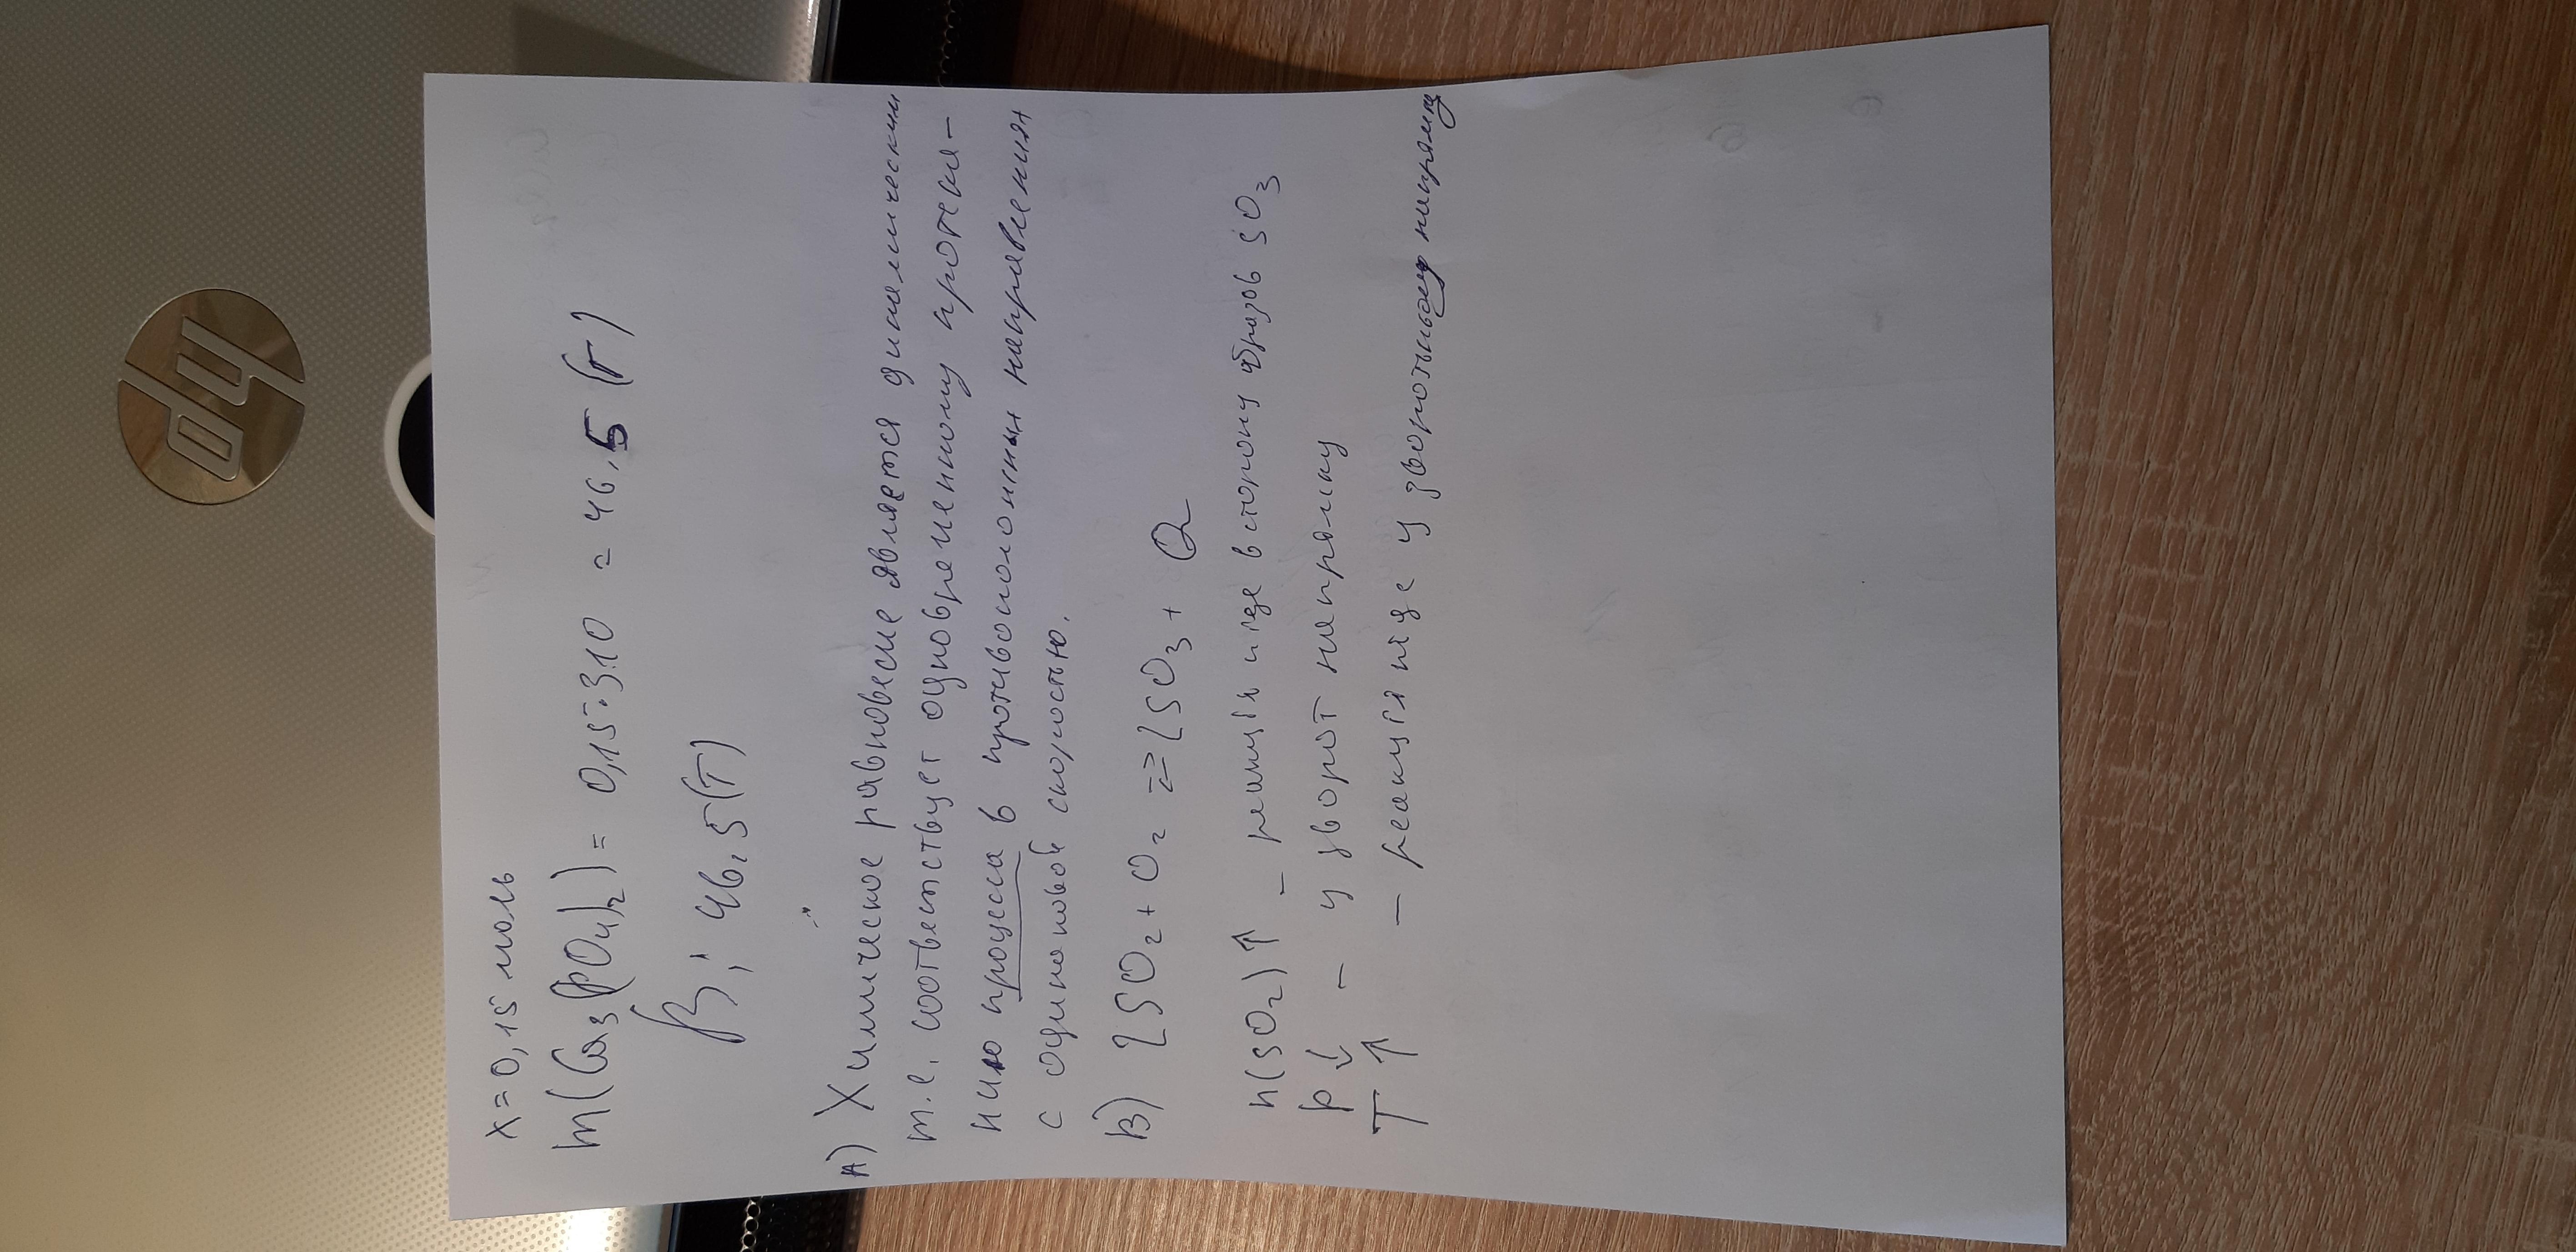 x = 0,15 моль
m(Ca₃(PO₄)₂) = 0,15·310 = 46,5 (г)
В: 46,5(г)
А) Химическое равновесие является динамическим
т.е. соответствует одновременному протека-
нию процесса в противоположных направлениях
с одинаковой скоростью.
В) 2SO₂ + O₂ ⇄ 2SO₃ + Q
n(SO₂)↑ – реакція иде в сторону образов SO₃
p↓ – у зворот напрямку
T↑ – реакція иде у зворотньому напрямку
hp